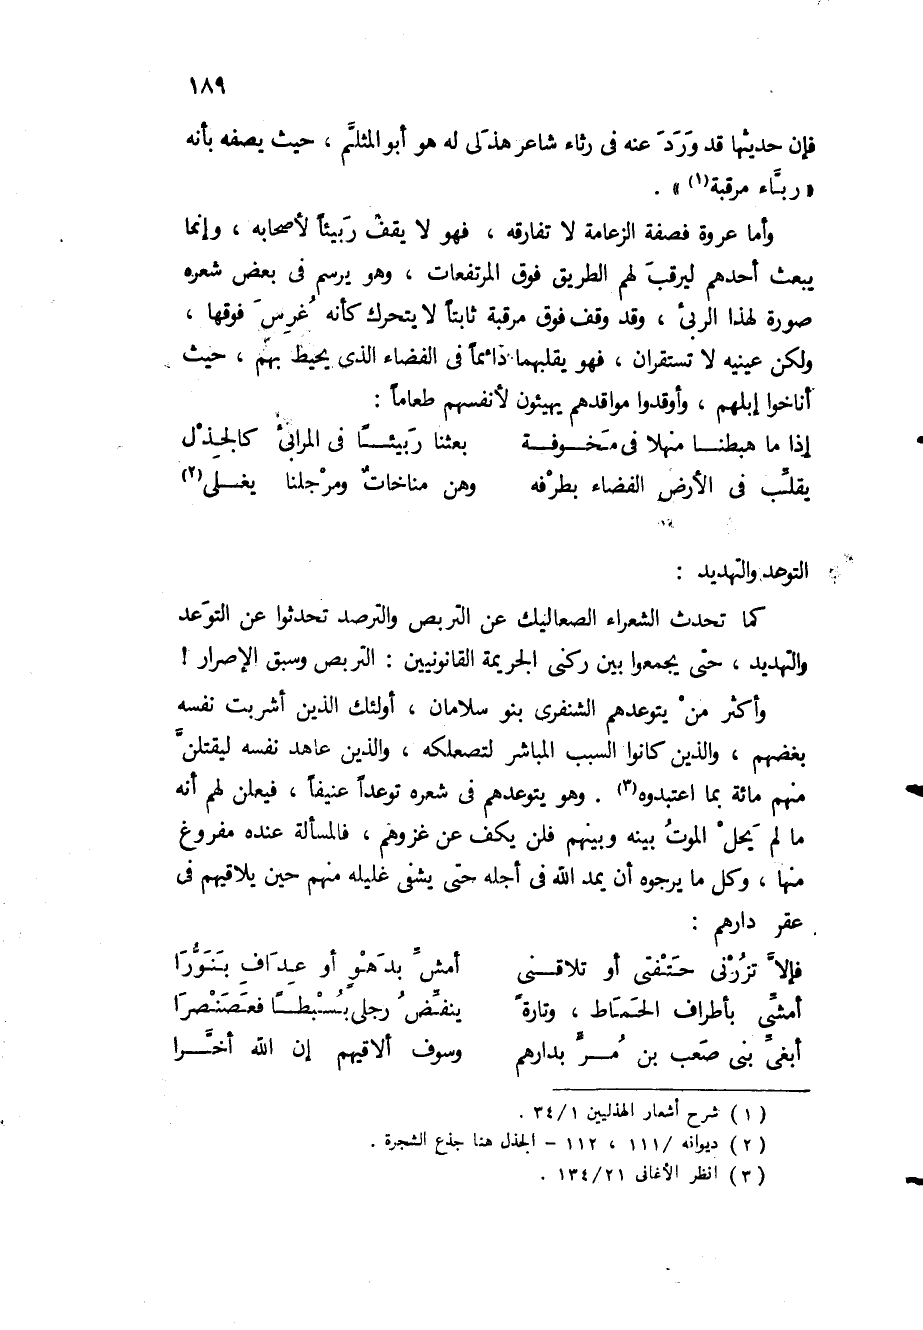 ١٨٩
فإن حديثها قد وَرَدَ عنه فى رثاء شاعر هذلى له هو أبو المثلَّم ، حيث يصفه بأنه
« ربَّاء مرقبة(١) » .
وأما عروة فصفة الزعامة لا تفارقه ، فهو لا يقف رَبيئاً لأصحابه ، وإنما
يبعث أحدهم ليرقبَ لهم الطريق فوق المرتفعات ، وهو يرسم فى بعض شعره
صورة لهذا الربىْ ، وقد وقف فوق مرقبة ثابتاً لا يتحرك كأنه غُرِسَ فوقها ،
ولكن عينيه لا تستقران ، فهو يقلبهما دائماً فى الفضاء الذى يحيط بهم ، حيث
أناخوا إبلهم ، وأوقدوا مواقدهم يهيئون لأنفسهم طعاماً :
إذا ما هبطنــا منهلا فى مَخــوفــة بعثنا رَبيئــاً فى المرابئْ كالجِذْل
يقلَّب فى الأرضِ الفضاء بطرْفه وهن مناخاتٌ ومرْجلنا يغــلى(٢)
التوعد والتهديد :
كما تحدث الشعراء الصعاليك عن التربص والترصد تحدثوا عن التوَعد
والتهديد ، حتى يجمعوا بين ركنى الجريمة القانونيين : التربص وسبق الإصرار !
وأكثر منْ يتوعدهم الشنفرى بنو سلامان ، أولئك الذين أشربت نفسه
بغضهم ، والذين كانوا السبب المباشر لتصعلكه ، والذين عاهد نفسه ليقتلنَّ
منهم مائة بما اعتبدوه(٣) . وهو يتوعدهم فى شعره توعداً عنيفاً ، فيعلن لهم أنه
ما لم يَحلْ الموتُ بينه وبينهم فلن يكف عن غزوهم ، فالمسألة عنده مفروغ
منها ، وكل ما يرجوه أن يمد الله فى أجله حتى يشفى غليله منهم حين يلاقيهم فى
عقر دارهم :
فإلاَّ تَزُرْنى حَتْفتى أو تلاقــنى أمش بدَهْوٍ أو عِدَافِ بَنَوَّرَا
أمشِّى بأطراف الحَمَاط ، وتارةً ينفِّض رجلى بُسْبطــاً فعَصَنْصرَا
أبغىِّ بنى صَعب بن مُــرٍّ بدارهم وسوف ألاقيهم إن الله أخَّــرا
(١) شرح أشعار الهذليين ٣٤/١ .
(٢) ديوانه /١١١ ، ١١٢ – الجذل هنا جذع الشجرة .
(٣) انظر الأغانى ١٣٤/٢١ .